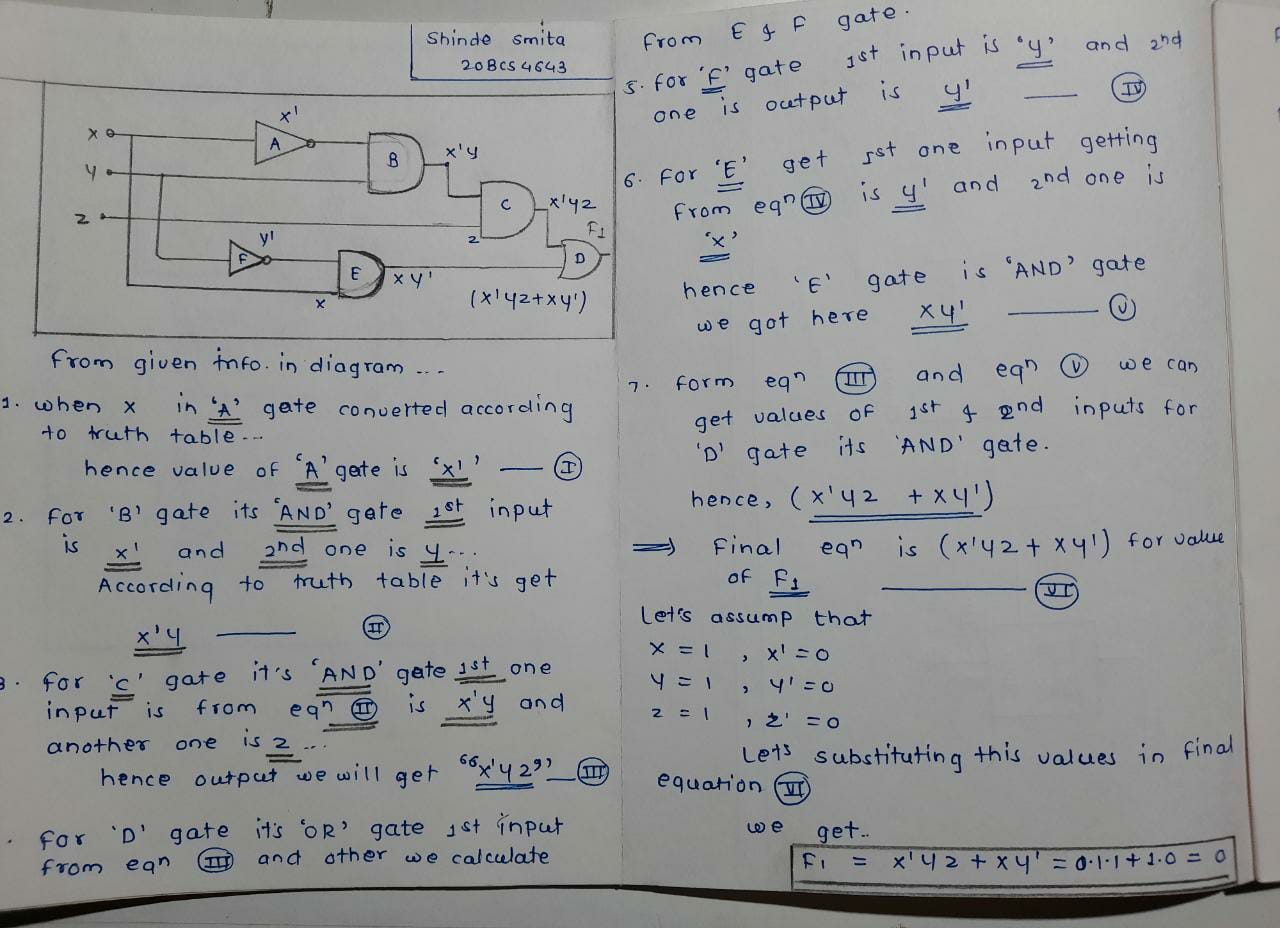 Shinde Smita
20BCS4643
x'
x
A
B
x'y
y
C
x'yz
z
z
F1
y'
F
E
xy'
D
x
(x'yz+xy')
From given info. in diagram ...
1. when x in 'A' gate converted according
to truth table ...
hence value of 'A' gate is 'x'' — I
2. For 'B' gate its 'AND' gate 1st input
is x' and 2nd one is y...
According to truth table it's get
x'y — II
3. For 'C' gate it's 'AND' gate 1st one
input is from eqn II is x'y and
another one is z ...
hence output we will get "x'yz" — III
. For 'D' gate it's 'OR' gate 1st input
from eqn III and other we calculate
From E & F gate.
5. for 'F' gate 1st input is 'y' and 2nd
one is output is y' — IV
6. For 'E' get 1st one input getting
from eqn IV is y' and 2nd one is
'x'
hence 'E' gate is 'AND' gate
we got here xy' — V
7. form eqn III and eqn V we can
get values of 1st & 2nd inputs for
'D' gate its 'AND' gate.
hence, (x'yz + xy')
⇒ Final eqn is (x'yz + xy') for value
of F1 — VI
Let's assump that
x = 1 , x' = 0
y = 1 , y' = 0
z = 1 , z' = 0
Lets substituting this values in final
equation VI
we get..
F1 = x'yz + xy' = 0.1.1 + 1.0 = 0